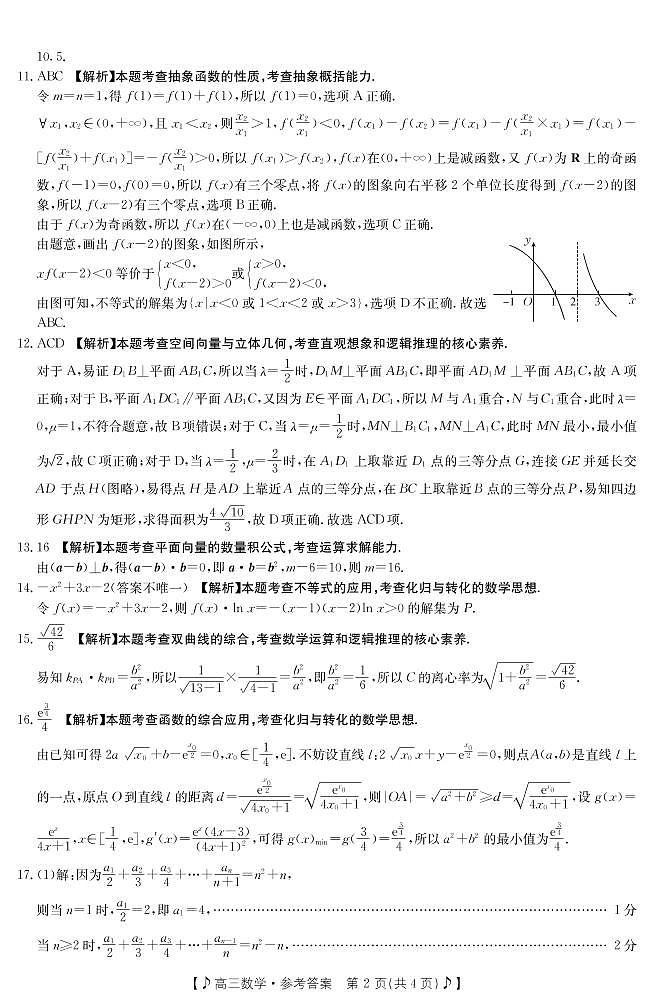 10.5.
11. ABC 【解析】本题考查抽象函数的性质,考查抽象概括能力.
令 m=n=1,得 f(1)=f(1)+f(1),所以 f(1)=0,选项 A 正确.
∀x₁,x₂∈(0,+∞),且 x₁<x₂,则x₂/x₁>1,f(x₂/x₁)<0,f(x₁)-f(x₂)=f(x₁)-f(x₂/x₁×x₁)=f(x₁)-
[f(x₂/x₁)+f(x₁)]=-f(x₂/x₁)>0,所以 f(x₁)>f(x₂),f(x)在(0,+∞)上是减函数,又 f(x)为 R 上的奇函
数,f(-1)=0,f(0)=0,所以 f(x)有三个零点,将 f(x)的图象向右平移 2 个单位长度得到 f(x-2)的图
象,所以 f(x-2)有三个零点,选项 B 正确.
由于 f(x)为奇函数,所以 f(x)在(-∞,0)上也是减函数,选项 C 正确.
由题意,画出 f(x-2)的图象,如图所示,
xf(x-2)<0 等价于{x<0, f(x-2)>0或{x>0, f(x-2)<0,
由图可知,不等式的解集为{x|x<0 或 1<x<2 或 x>3},选项 D 不正确.故选
ABC.
y
-1 O 1 2 3 x
12. ACD 【解析】本题考查空间向量与立体几何,考查直观想象和逻辑推理的核心素养.
对于 A,易证 D₁B⊥平面 AB₁C,所以当 λ=1/2时,D₁M⊥平面 AB₁C,即平面 AD₁M⊥平面 AB₁C,故 A 项
正确;对于 B,平面 A₁DC₁∥平面 AB₁C,又因为 E∈平面 A₁DC₁,所以 M 与 A₁重合,N 与C₁重合,此时 λ=
0,μ=1,不符合题意,故 B 项错误;对于 C,当 λ=μ=1/2时,MN⊥B₁C₁,MN⊥A₁C,此时 MN 最小,最小值
为√2,故 C 项正确;对于 D,当 λ=1/2,μ=2/3时,在 A₁D₁ 上取靠近 D₁ 点的三等分点 G,连接 GE 并延长交
AD 于点 H(图略),易得点 H 是 AD 上靠近 A 点的三等分点,在 BC 上取靠近 B 点的三等分点 P,易知四边
形 GHPN 为矩形,求得面积为4√10/3,故 D 项正确.故选 ACD 项.
13. 16 【解析】本题考查平面向量的数量积公式,考查运算求解能力.
由(a-b)⊥b,得(a-b)·b=0,即 a·b=b²,m-6=10,则 m=16.
14. -x²+3x-2(答案不唯一) 【解析】本题考查不等式的应用,考查化归与转化的数学思想.
令 f(x)=-x²+3x-2,则 f(x)·ln x=-(x-1)(x-2)ln x>0 的解集为 P.
15. √42/6 【解析】本题考查双曲线的综合,考查数学运算和逻辑推理的核心素养.
易知 kPA·kPB=b²/a²,所以1/√(13-1)×1/√(4-1)=b²/a²,即b²/a²=1/6,所以 C 的离心率为√(1+b²/a²)=√42/6.
16. e^(3/4)/4 【解析】本题考查函数的综合应用,考查化归与转化的数学思想.
由已知可得 2a√x₀+b-e^(x₀/2)=0,x₀∈[1/4,e].不妨设直线 l:2√x₀x+y-e^(x₀/2)=0,则点A(a,b)是直线 l 上
的一点,原点 O 到直线 l 的距离 d=e^(x₀/2)/√(4x₀+1)=√(e^x₀/(4x₀+1)),则|OA|=√(a²+b²)≥d=√(e^x₀/(4x₀+1)),设 g(x)=
eˣ/(4x+1),x∈[1/4,e],g′(x)=eˣ(4x-3)/(4x+1)²,可得 g(x)min=g(3/4)=e^(3/4)/4,所以 a²+b² 的最小值为e^(3/4)/4.
17. (1)解:因为a₁/2+a₂/3+a₃/4+⋯+aₙ/(n+1)=n²+n,
则当 n=1 时,a₁/2=2,即 a₁=4,………… 1 分
当 n≥2 时,a₁/2+a₂/3+a₃/4+⋯+aₙ₋₁/n=n²-n,………… 2 分
【♪高三数学·参考答案 第 2 页(共 4 页)♪】